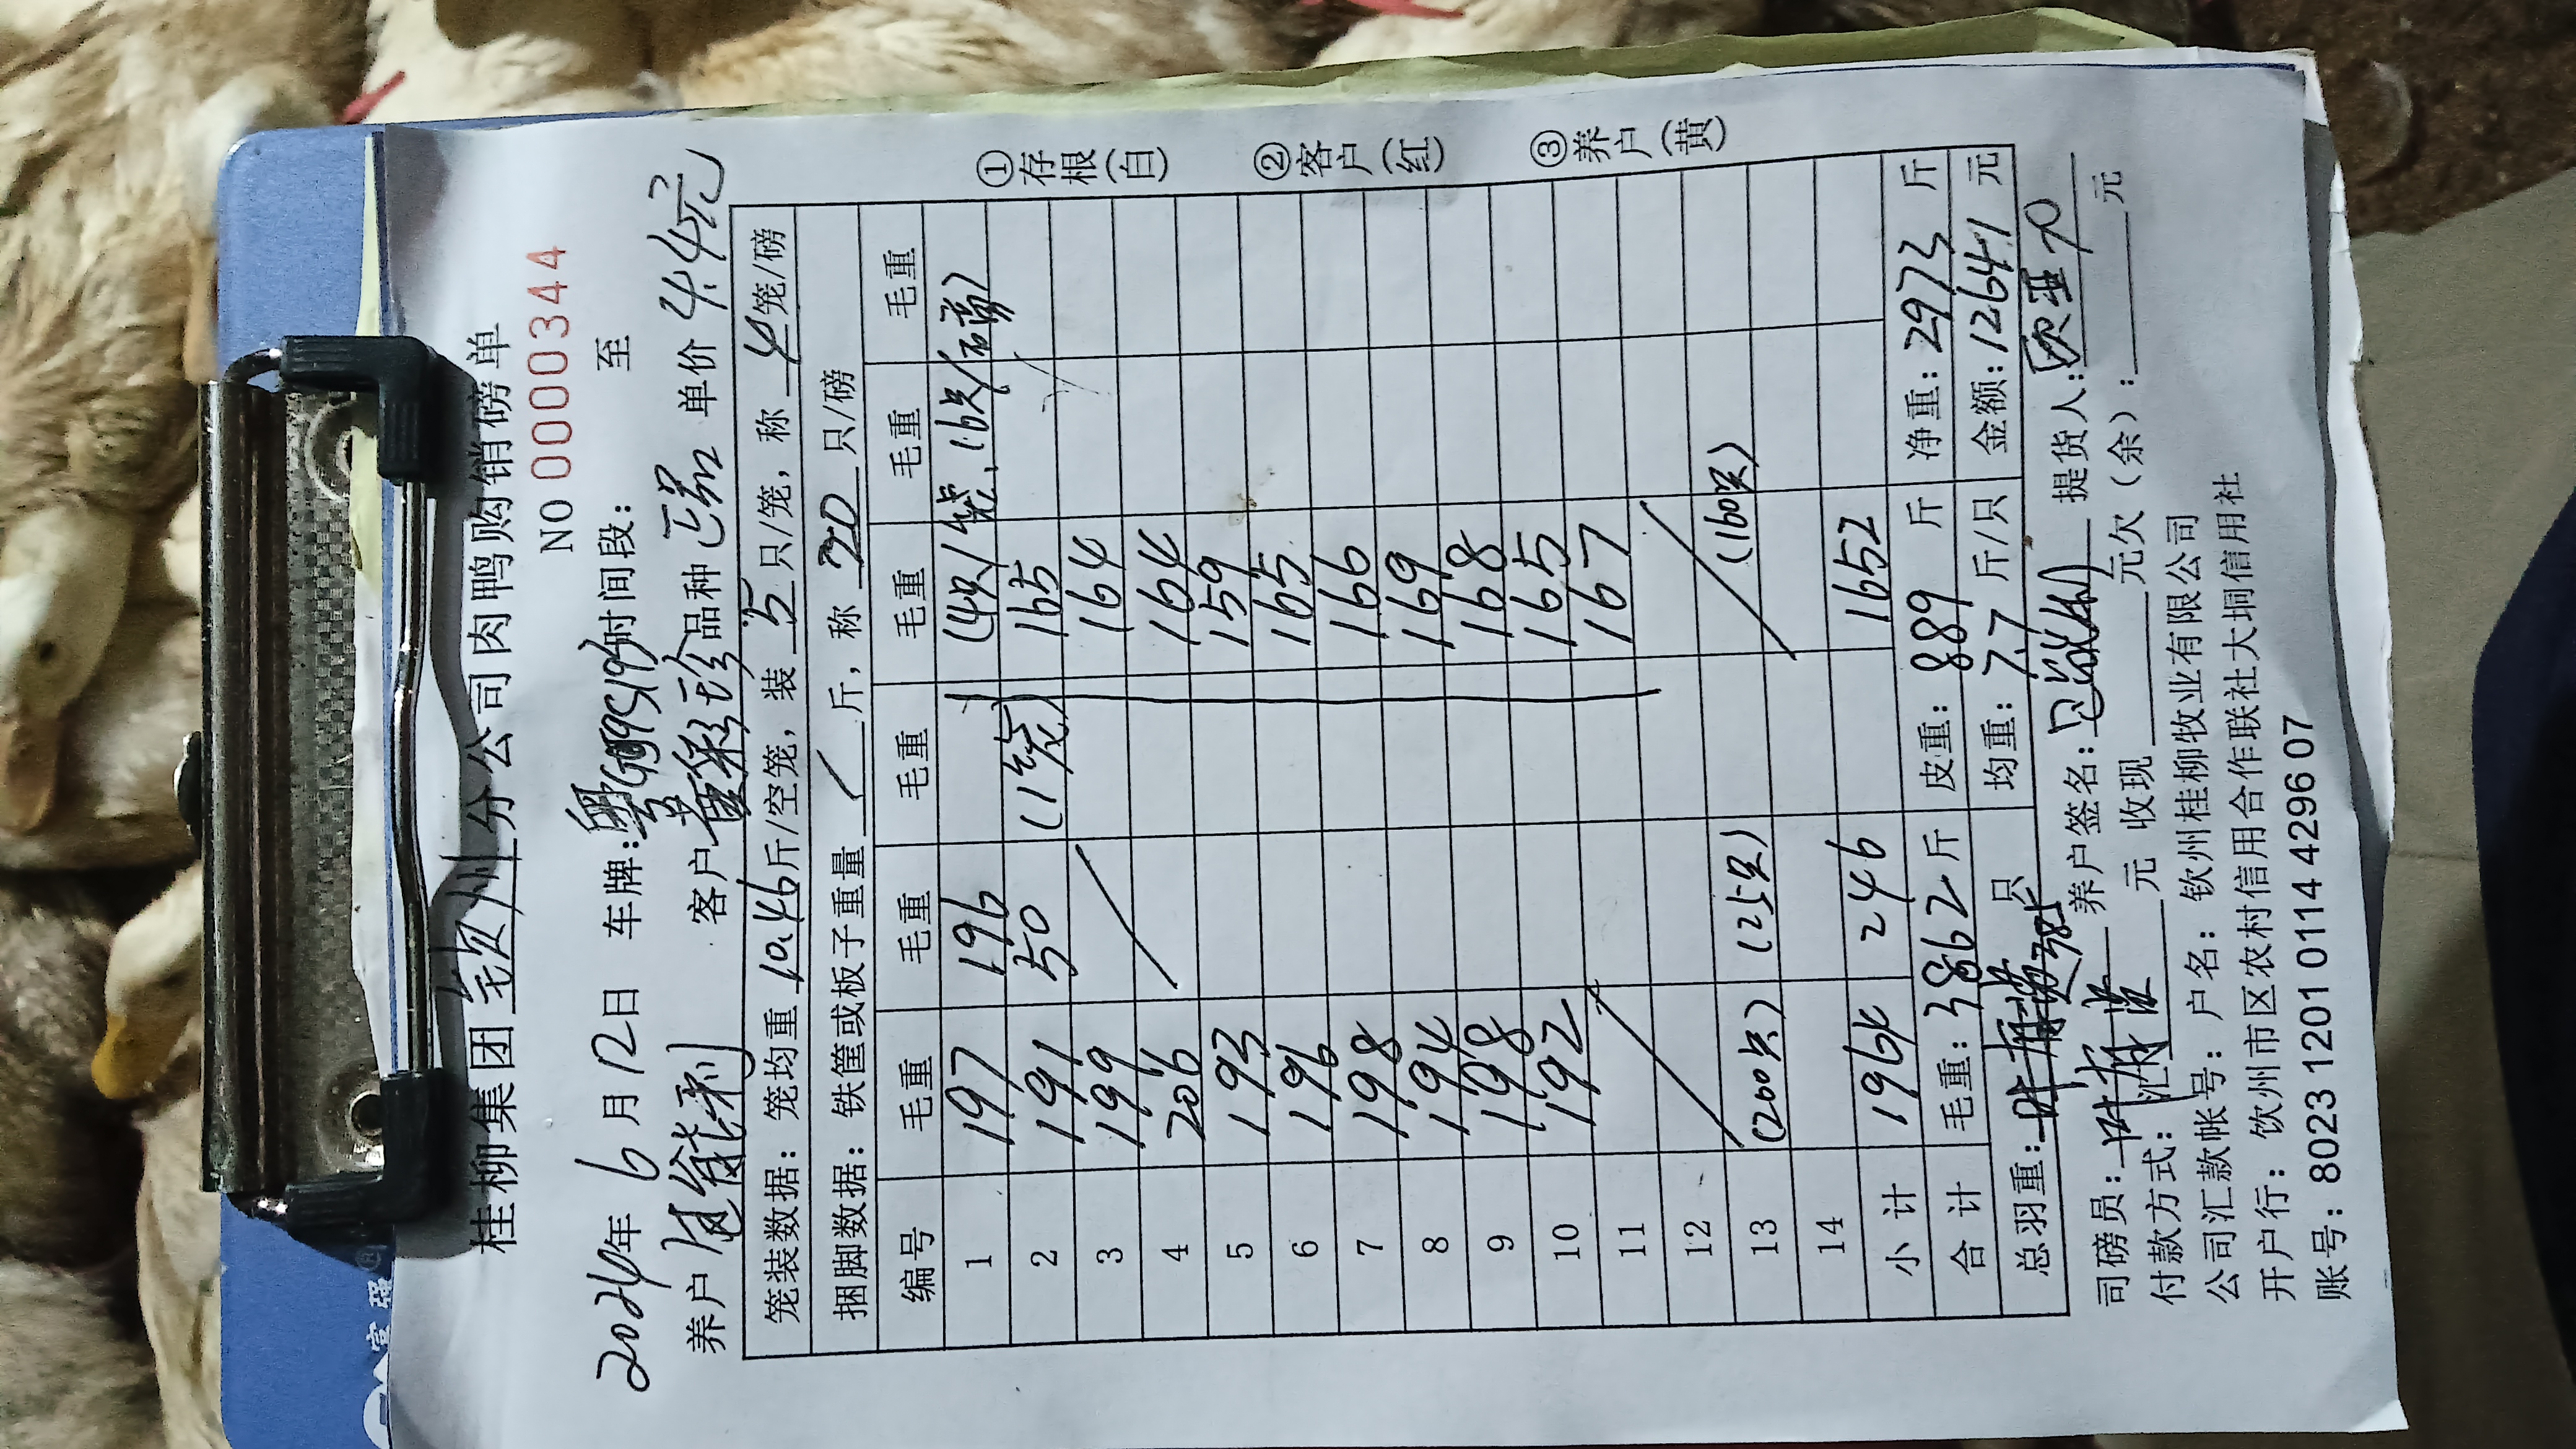 桂柳集团 钦州 分公司肉鸭购销磅单
NO 0000344
2024年 6 月 12 日 车牌: 时间段: 至
养户 客户 品种 单价 4.4元
笼装数据: 笼均重 10.46 斤/空笼, 装 5 只/笼, 称 4 笼/磅
捆脚数据: 铁筐或板子重量 / 斤, 称 20 只/磅
编号 毛重 毛重 毛重 毛重 毛重 毛重
1 197 196 (4只/笼, 16只/磅)
2 191 50 (1笼) 165
3 199 164
4 206 164
5 193 159
6 196 165
7 198 166
8 194 169
9 198 168
10 192 165
11 167
12
13 (200只) (25只) (160只)
14
小 计 1964 246 1652
合 计 毛重: 3862 斤 皮重: 889 斤 净重: 2973 斤
总羽重: 385 只 均重: 7.7 斤/只 金额: 12641 元
司磅员: 养户签名: 提货人:
付款方式: 汇 元 收现 元欠(余): 元
公司汇款帐号: 户名: 钦州桂柳牧业有限公司
开户行: 钦州市区农村信用合作联社大垌信用社
账号: 8023 1201 0114 4296 07
①存根(白)
②客户(红)
③养户(黄)